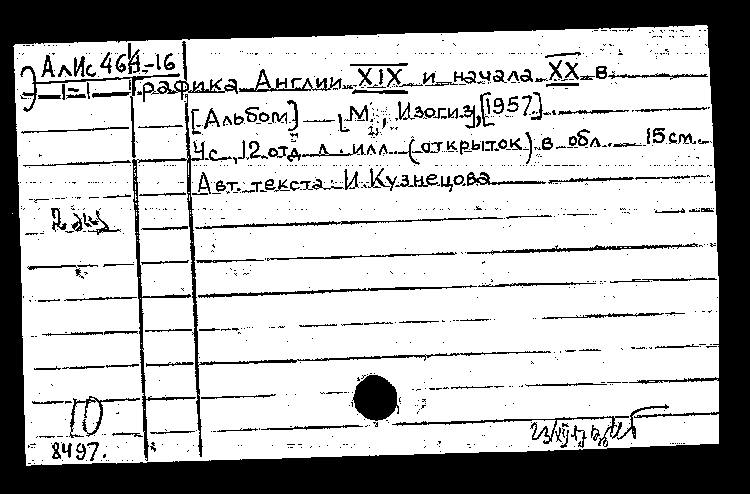 АлИс 464-16
1=1
Графика Англии XIX и начала XX в.
[Альбом] [М., Изогиз, [1957]
4с., 12 отд. л. илл. (открыток) в обл. 15 см.
Авт. текста: И. Кузнецова
10
8497.